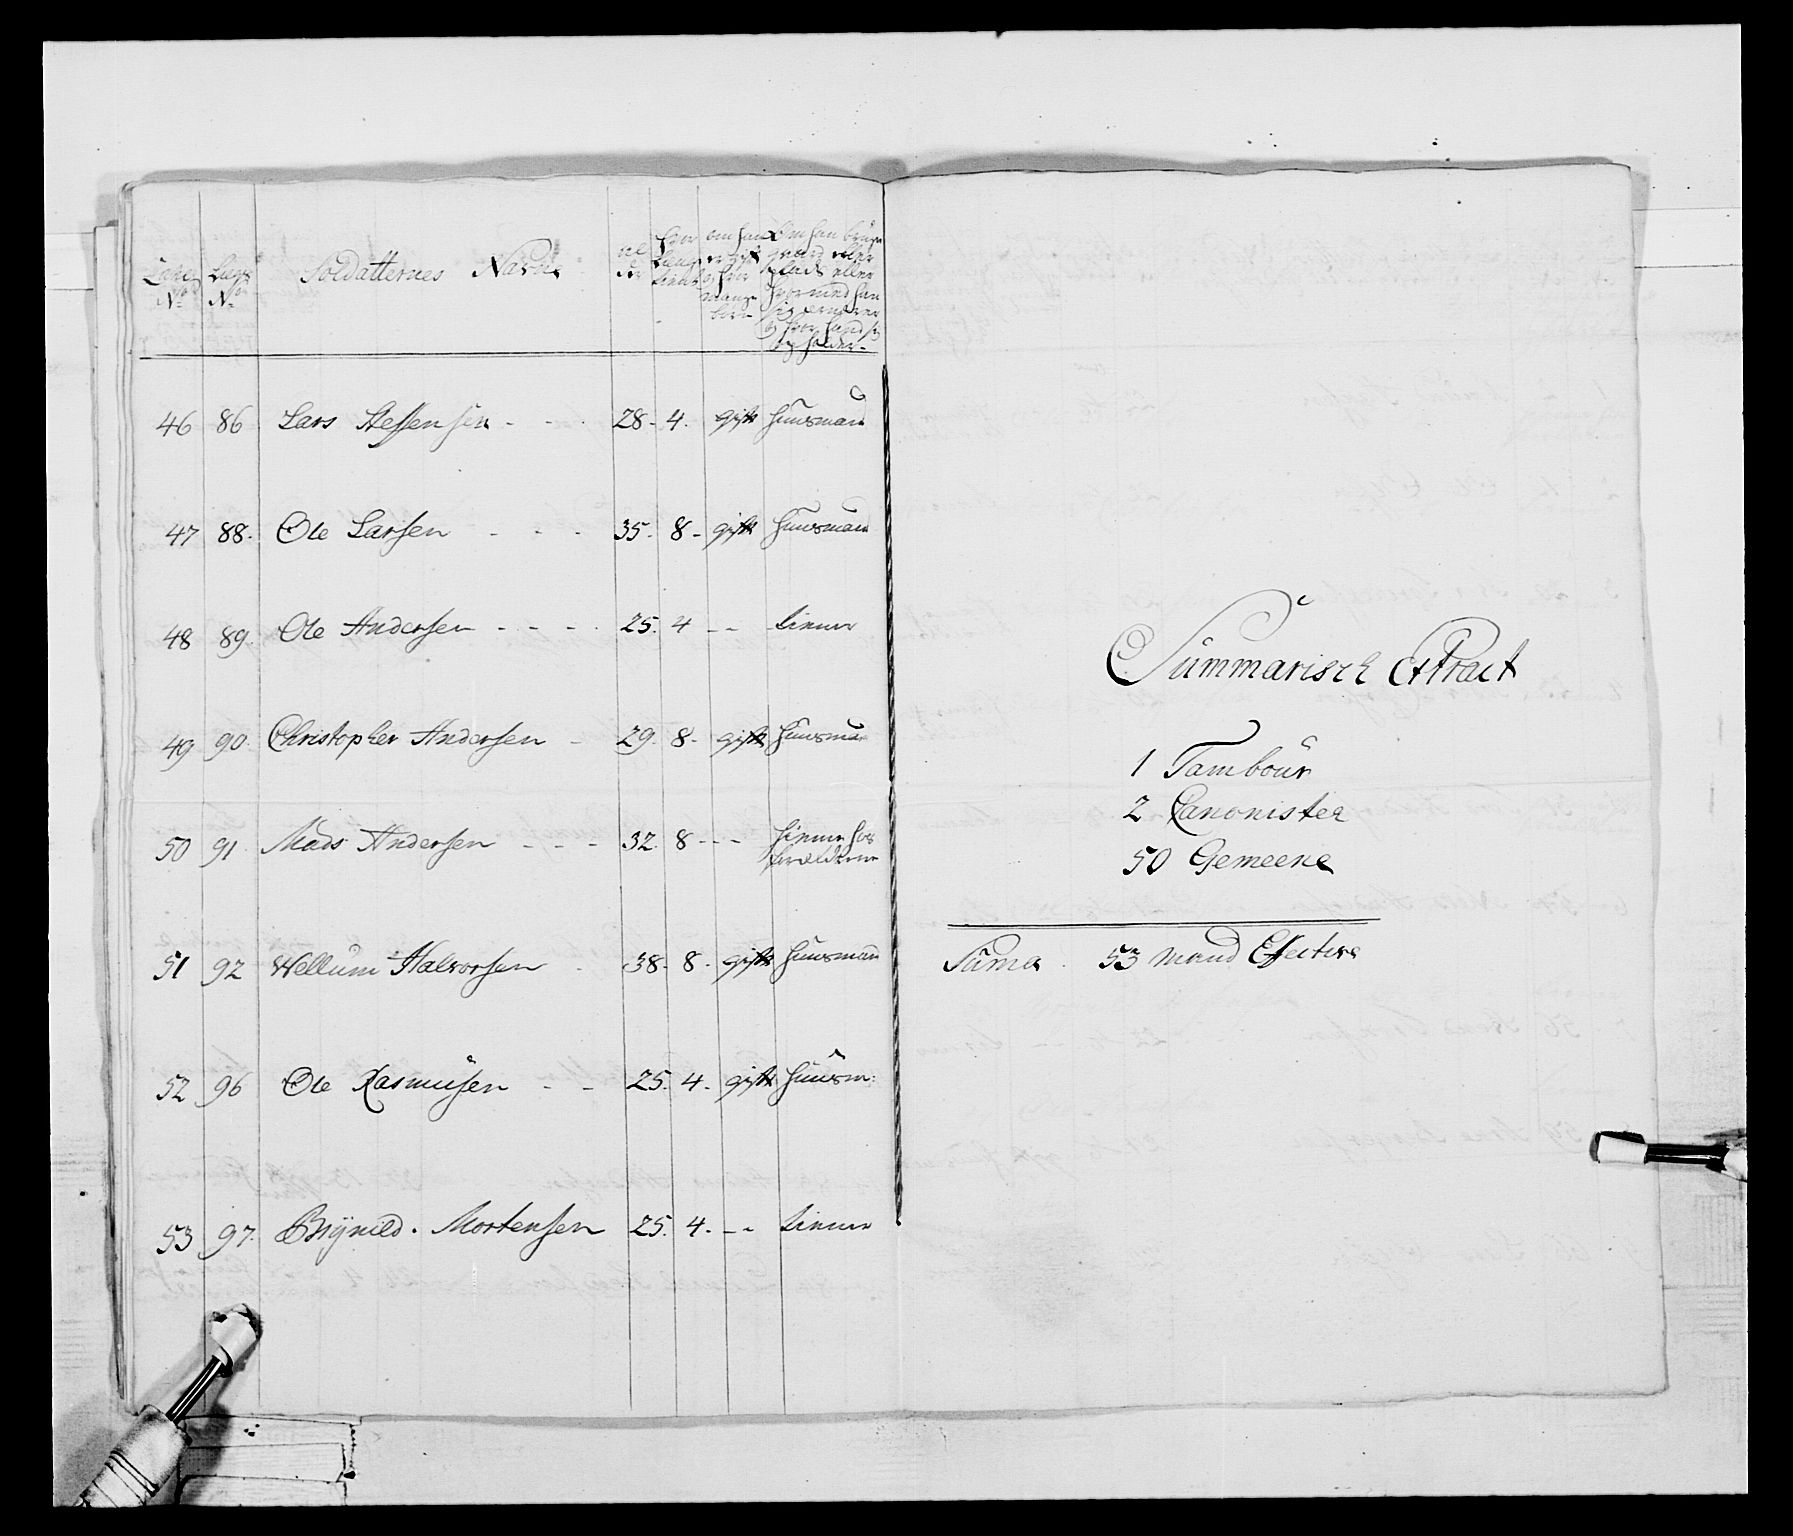 Soldatternes Navne
46 86 Lars Steffensen - - - 28. 4. gift Huusmand
47 88. Ole Larsen - - - 35. 8 - gift Huusmand
48 89. Ole Andersen - - - - 25. 4 - - tiener
49 90. Christopher Andersen - 29. 8. gift Huusman
50 91 Mads Andersen - - - 32. 8 - - - tiener hos
forældrene
51 92 Wellum Halvorsen . 38. 8. gift Huusmand
52 96 Ole Rasmusen - - 25. 4. gift Huusm:
53 97. Brÿnild. Mortensen 25. 4. - - tiener
Summarisch Extract
1 Tambour
2 Canonister
50 Gemeene
Suma . 53 Mand Effective